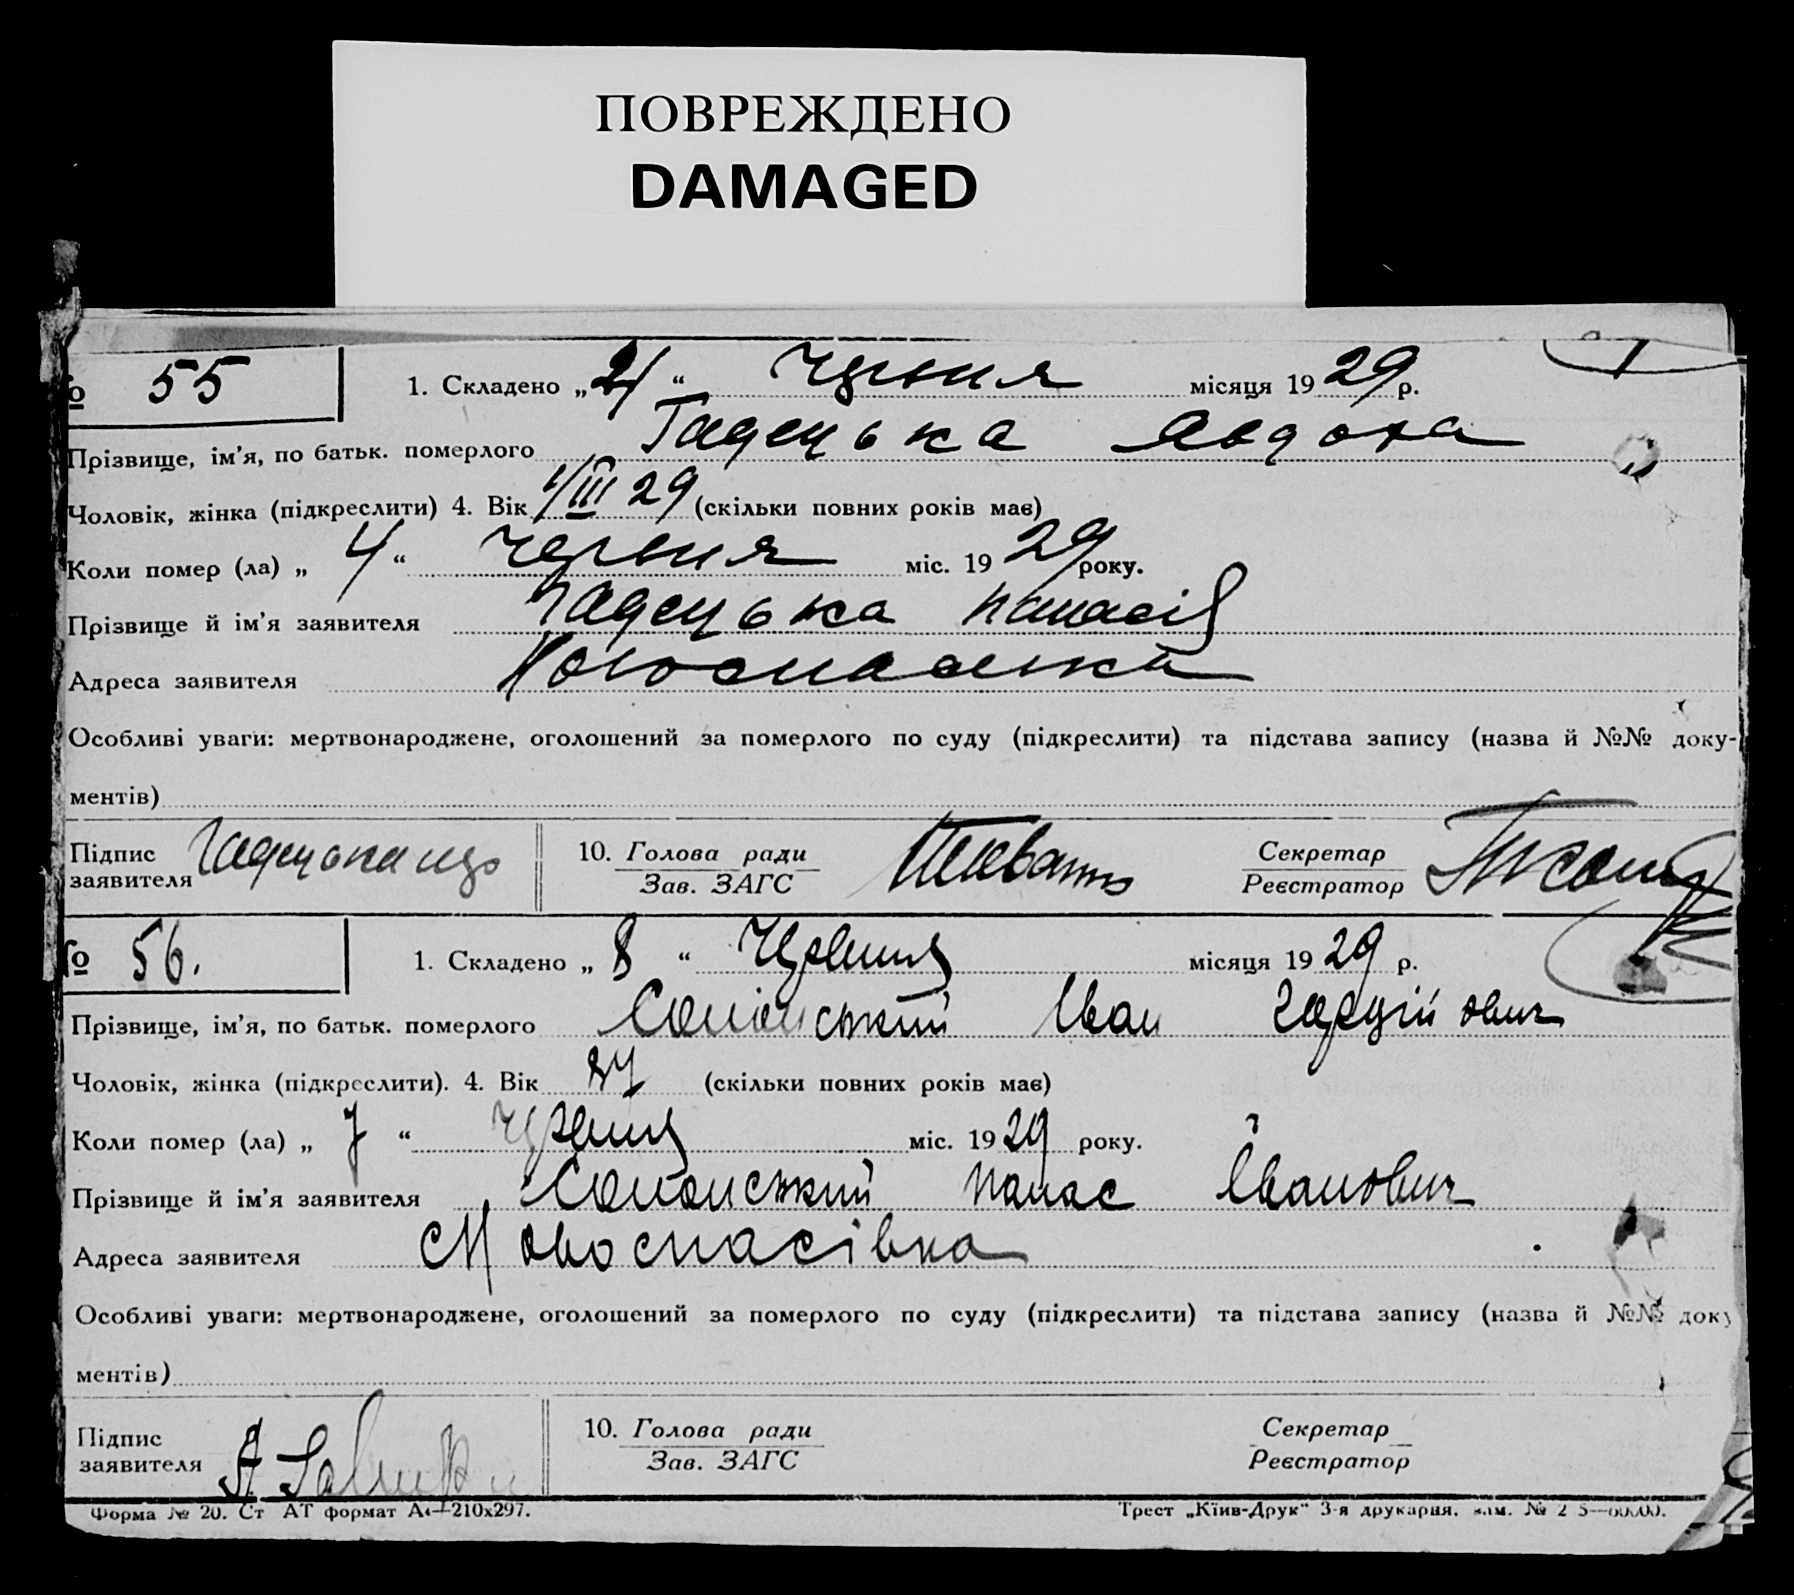 ПОВРЕЖДЕНО
DAMAGED
№ 55 1. Складено „ 4 “ Червня місяця 1929 р.
Прізвище, ім’я, по батьк. померлого Гадецька Явдоха
Чоловік, жінка (підкреслити) 4. Вік 1/III 29 (скільки повних років має)
Коли помер (ла) „ 4 “ червня міс. 1929 року.
Прізвище й ім’я заявителя Гадецька Панасій
Адреса заявителя Новоспаська
Особливі уваги: мертвонароджене, оголошений за померлого по суду (підкреслити) та підстава запису (назва й №№ доку-
ментів)
Підпис заявителя 10. Голова ради Секретар
Зав. ЗАГС Реєстратор
№ 56. 1. Складено „ 8 “ Червня місяця 1929 р.
Прізвище, ім’я, по батьк. померлого Іван
Чоловік, жінка (підкреслити). 4. Вік (скільки повних років має)
Коли помер (ла) „ 7 “ Червня міс. 1929 року.
Прізвище й ім’я заявителя Панас Іванович
Адреса заявителя Новоспасівка
Особливі уваги: мертвонароджене, оголошений за померлого по суду (підкреслити) та підстава запису (назва й №№ доку
ментів)
Підпис заявителя 10. Голова ради Секретар
Зав. ЗАГС Реєстратор
Форма № 20. Ст АТ формат А4—210x297. Трест „Київ-Друк“ 3-я друкарня. зам. №